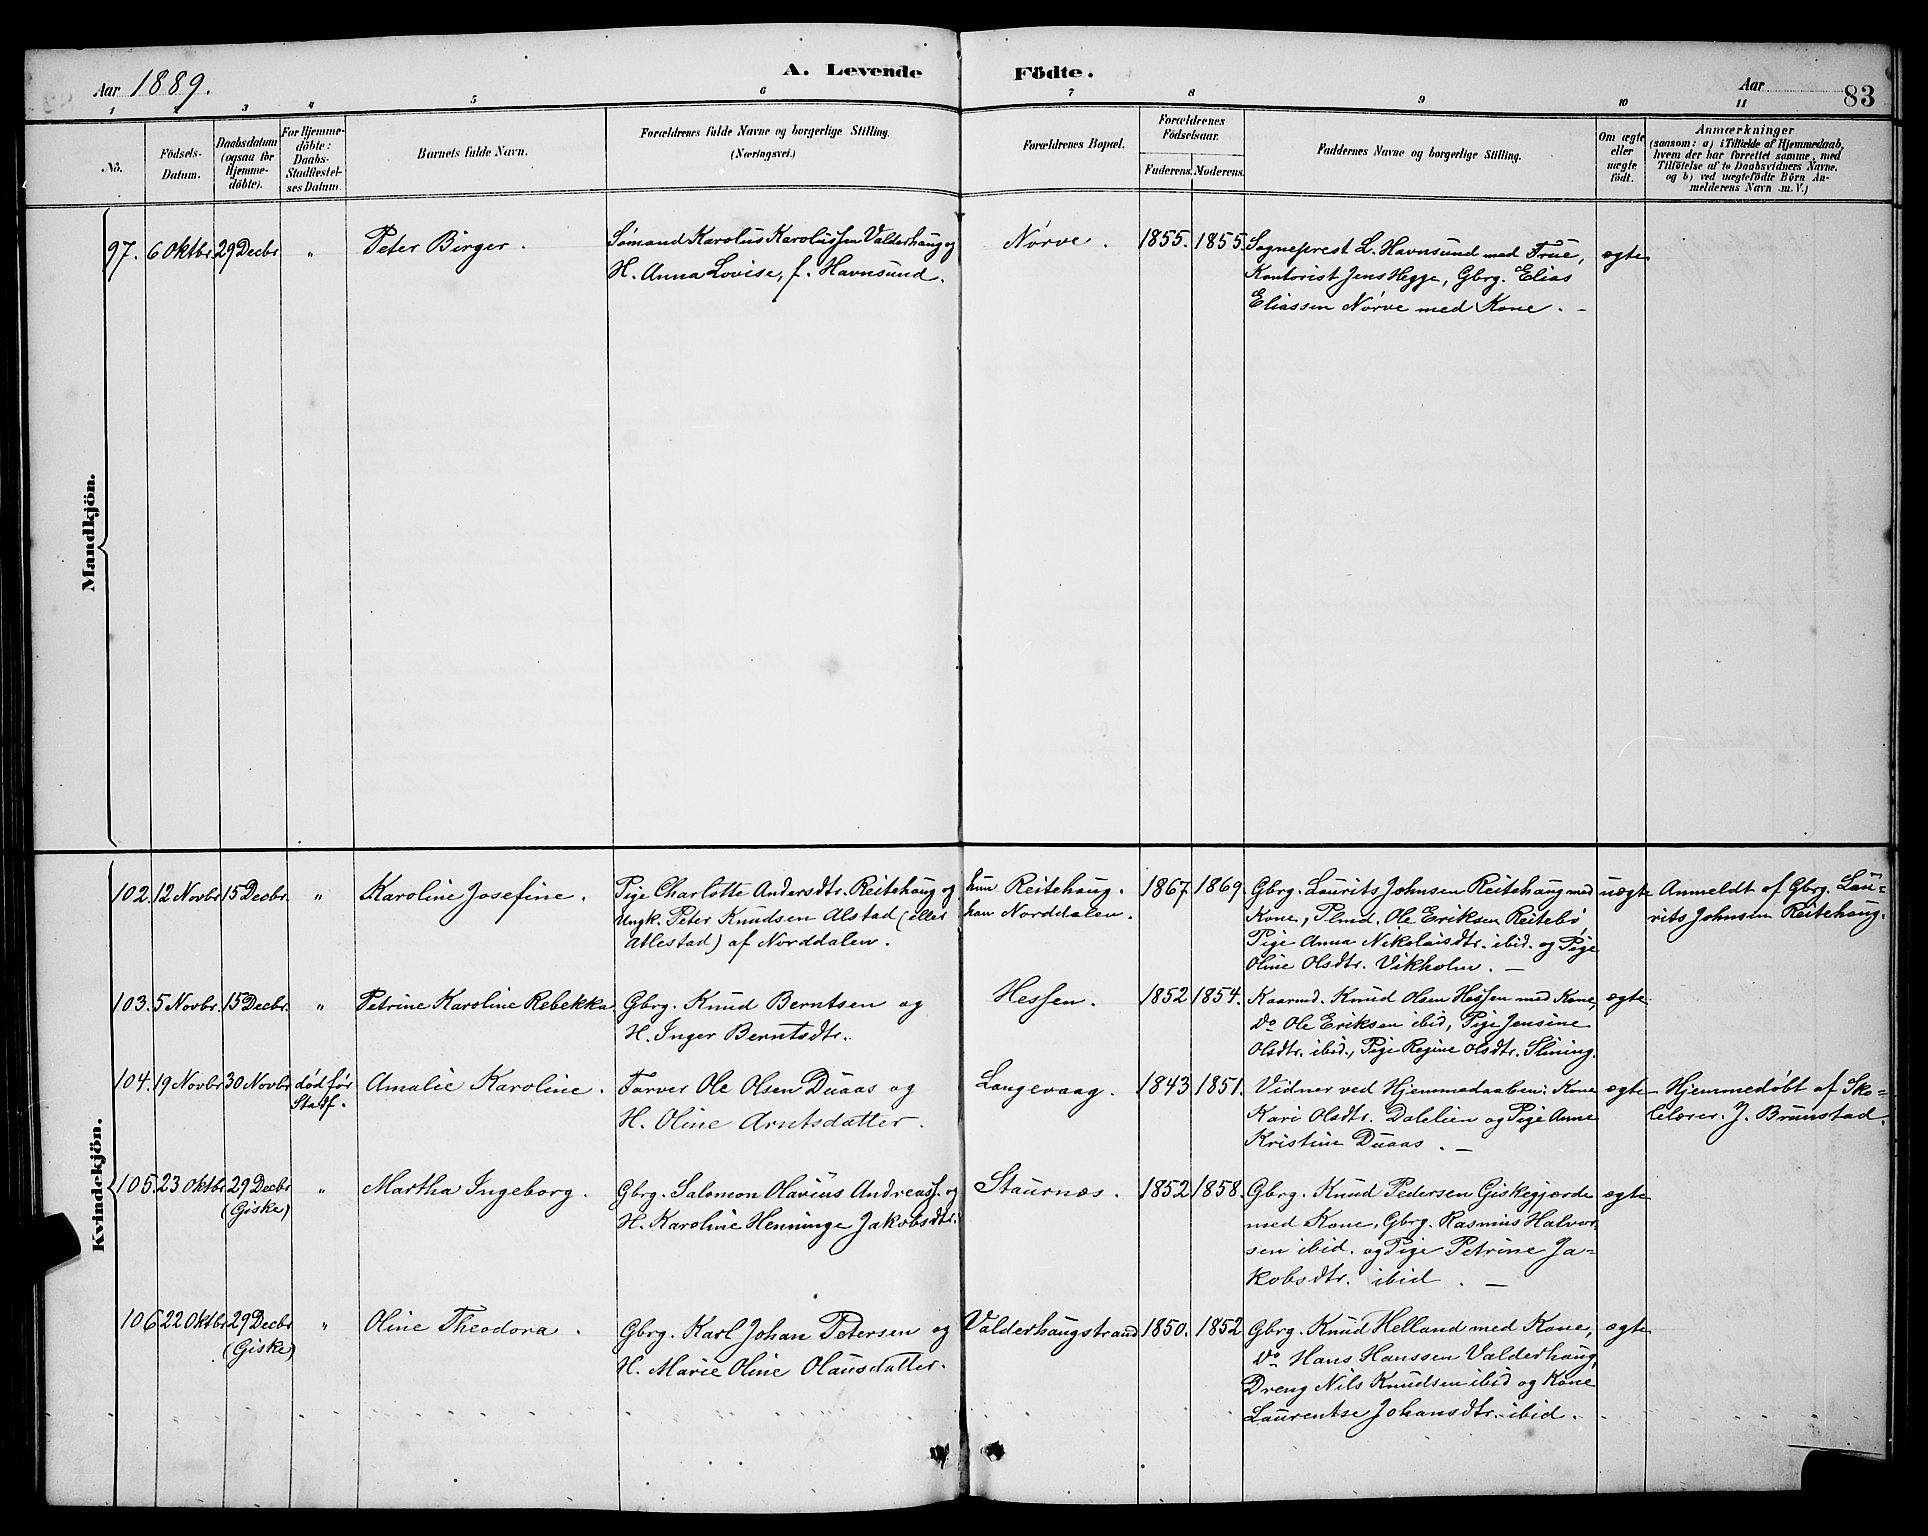 A. Levende Födte.
Aar 1889.
Aar
83
1 3 4 5 6 7 8 9 10 11
No.
Födsels-
Datum.
Daabsdatum
(ogsaa for
Hjemme-
döbte).
For Hjemme-
döbte:
Daabs-
Stadfæstel-
ses Datum.
Barnets fulde Navn.
Forældrenes fulde Navne og borgerlige Stilling.
(Næringsvei.)
Forældrenes Bopæl.
Forældrenes
Födselsaar.
Faderens. Moderens.
Faddernes Navne og borgerlige Stilling.
Om ægte
eller
uægte
födt.
Anmærkninger
(saasom: a) i Tilfælde af Hjemmedaab,
hvem der har forrettet samme, med
Tilföielse af to Daabsvidners Navne,
og b) ved uægtefödte Börn An-
melderens Navn m. V.)
Mandkjön.
97. 6 Oktbr. 29 Decbr " Peter Birger. Sømand Karolus Karolussen Valderhaug og Nørve. 1855. 1855. Sogneprest L. Havnsund med Frue, ægte
H. Anna Lovise, f. Havnsund. Kontorist Jens Hegge, Gbrg. Elias
Eliassen Nørve med Kone. –
Kvindekjön.
102. 12 Novbr. 15 Decbr. " Karoline Josefine. Pige Charlotte Andersdtr. Reitehaug og hun Reitehaug. 1867. 1869. Gbrg. Laurits Johnsen Reitehaug med uægte Anmeldt af Gbrg. Lau-
Ungk. Peter Knudsen Alstad (eller han Norddalen. Kone, Plmd. Ole Eriksen Reitebø rits Johnsen Reitehaug.
Allestad) af Norddalen. Pige Anna Nikolaisdtr. ibid. og Pige
Oline Olsdtr. Vikholm. –
103. 5 Novbr. 15 Decbr. " Petrine Karoline Rebekka Gbrg. Knud Berntsen og Hessen. 1852 1854. Kaarmd. Knud Olsen Hessen med Kone, ægte
H. Inger Berntsdtr. Do Ole Eriksen ibid, Pige Jensine
Olsdtr. ibid., Pige Regine Olsdtr. Slining.
104. 19 Novbr. 30 Novbr død før Amalie Karoline. Farver Ole Olsen Duaas og Langevaag. 1843 1851. Vidner ved Hjemmedaaben: Kone ægte Hjemmedøbt af Sko-
Stadf. H. Oline Arntsdatter. Kari Olsdtr. Dalelien og Pige Anne lelærer J. Brunstad.
Kristine Duaas. –
105. 23 Oktbr 29 Decbr " Martha Ingeborg. Gbrg. Salomon Olavius Andreass. og Staurnæs. 1852 1858. Gbrg. Knud Pedersen Giskegjærde ægte
(Giske) H. Karoline Henninge Jakobsdtr. med Kone, Gbrg. Rasmus Halvor-
sen ibid. og Pige Petrine Ja-
kobsdtr. ibid. –
106 22 Oktbr 29 Decbr " Oline Theodora. Gbrg. Karl Johan Petersen og Valderhaugstrand 1850. 1852 Gbrg. Knud Helland med Kone, ægte
(Giske) H. Marie Oline Olausdatter. Do Hans Hanssen Valderhaug,
Dreng Nils Knudsen ibid og Kone
Laurentse Johansdtr. ibid.